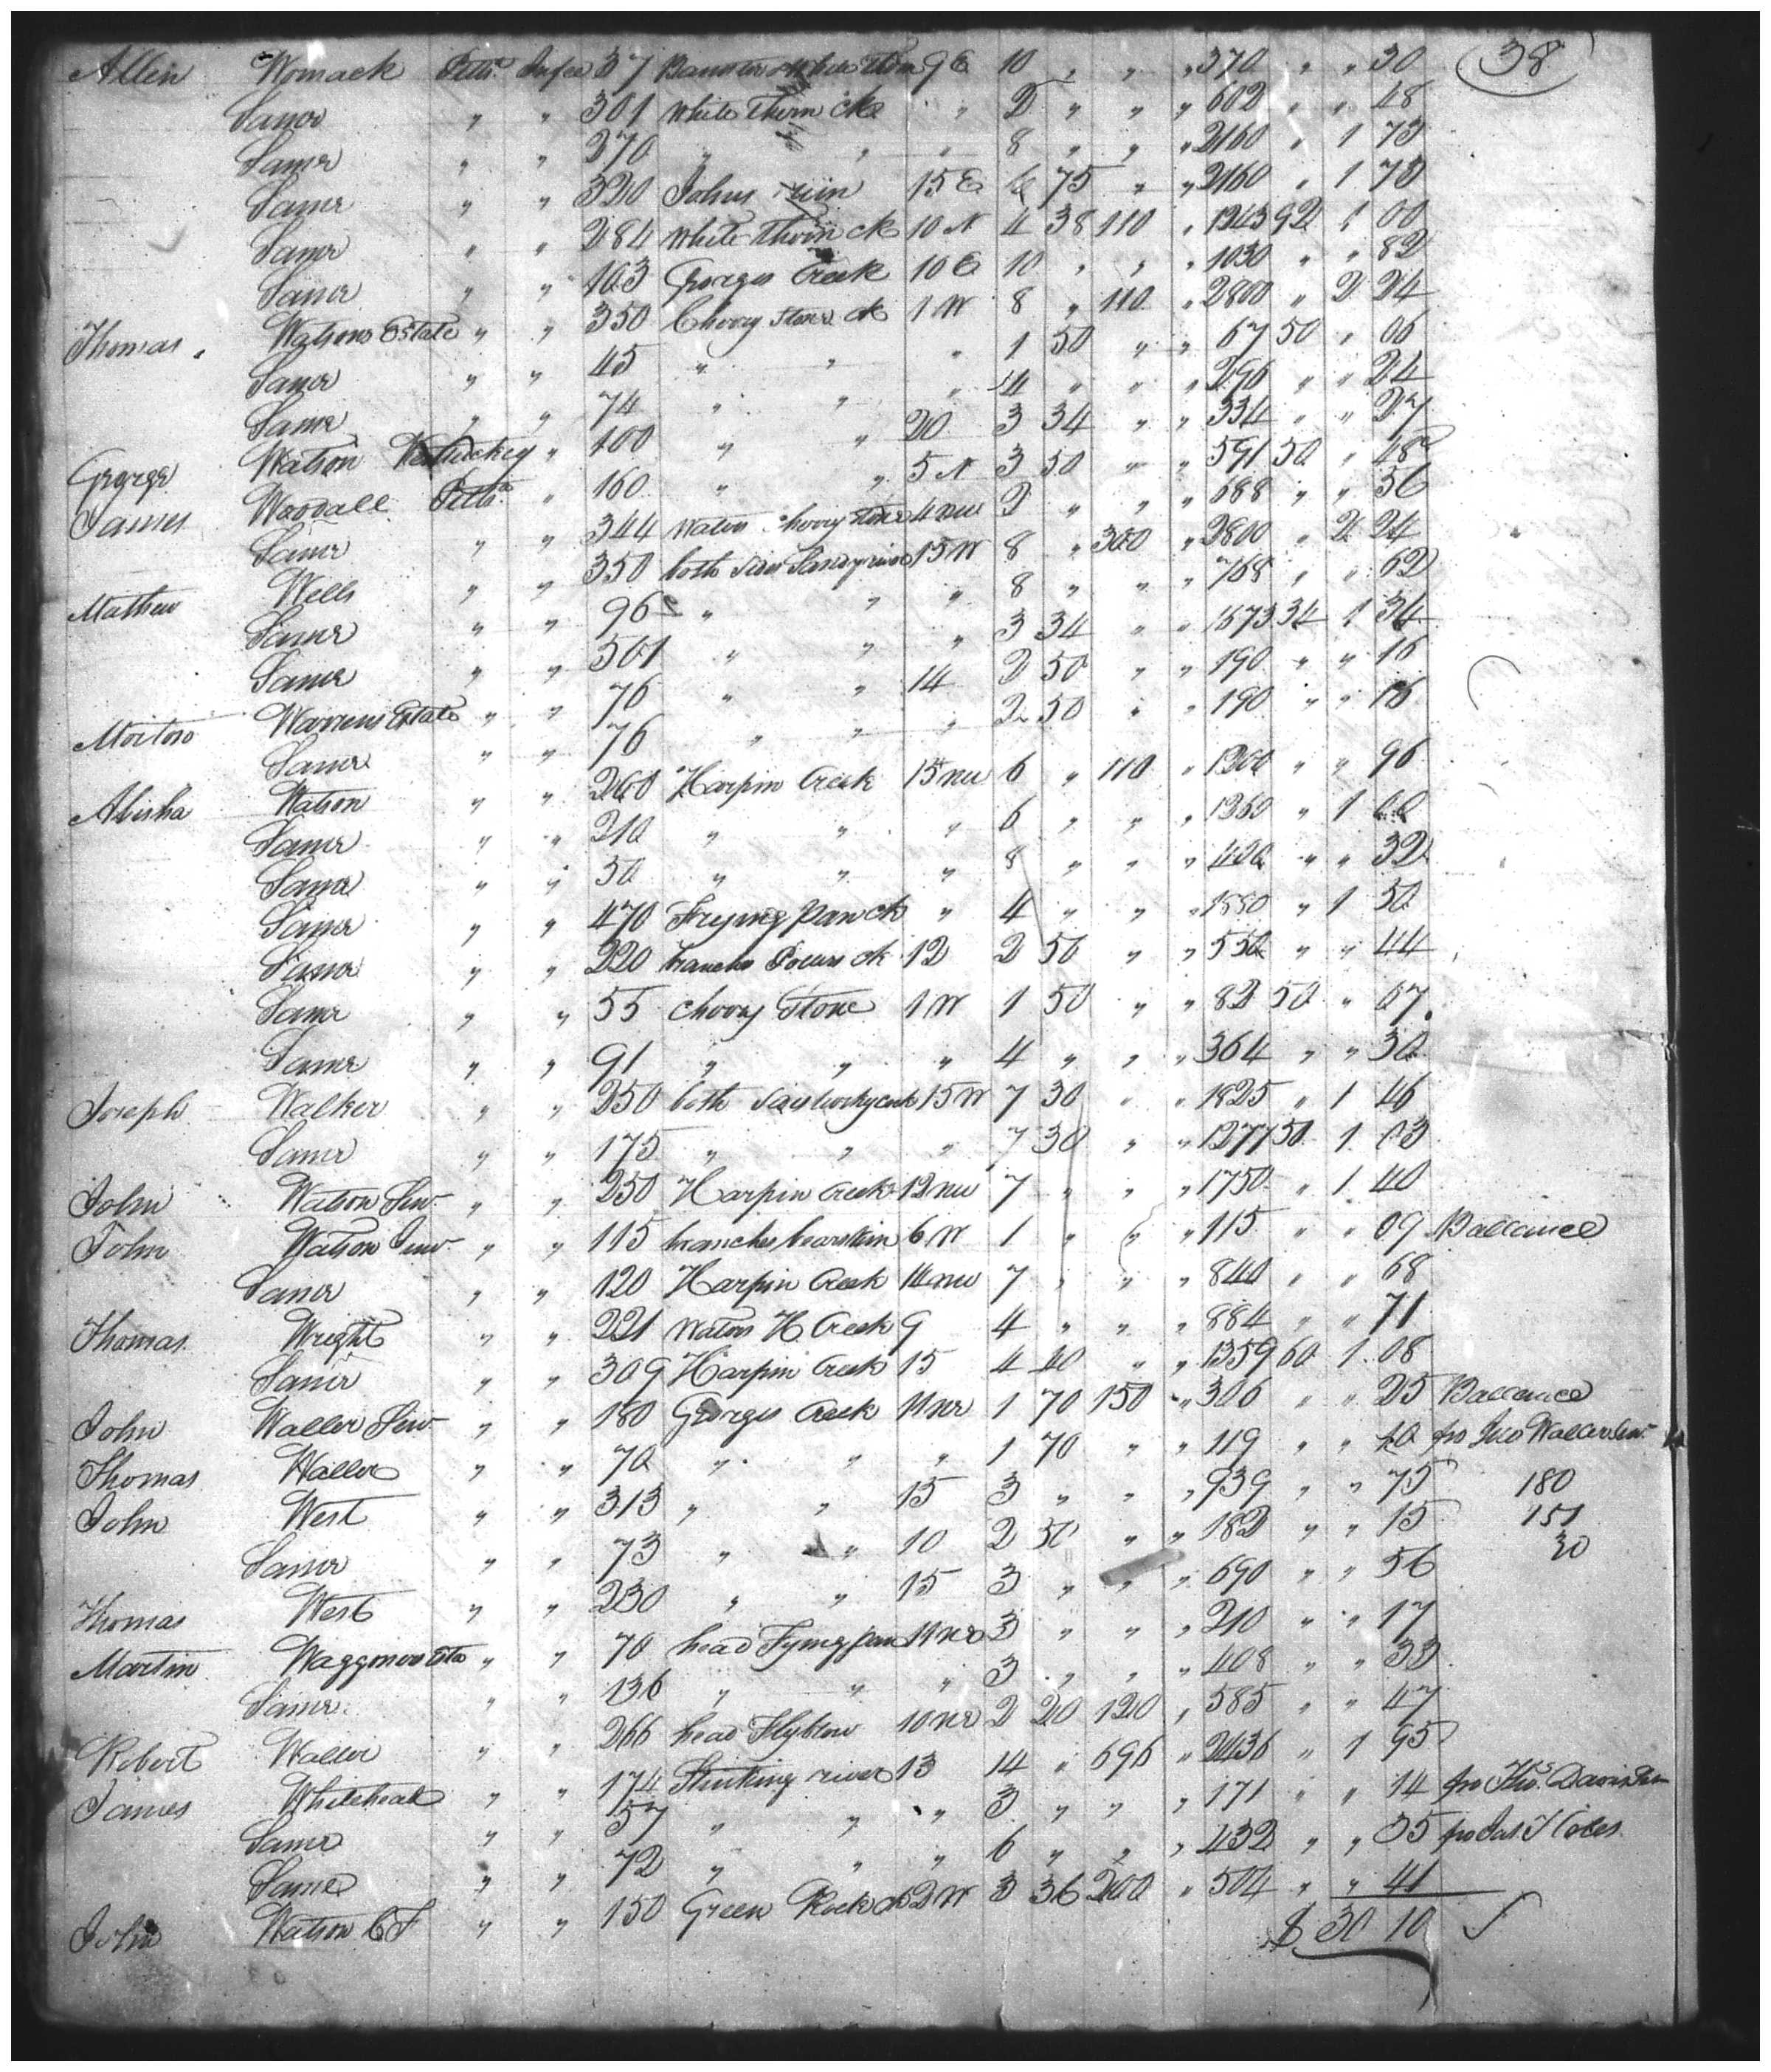 38
Allen Womack Pitts. Infee 37 Banister & White Thorn 9 E 10 " " " 370 " " 30
Same " " 301 White Thorn ck " 2 " " " 602 " " 48
Same " " 270 " " " 8 " " " 2160 " 1 73
Same " " 320 Johns Run 15 E 6 75 " " 2160 " 1 73
Same " " 284 White Thorn ck 10 N 4 38 110 " 1243 92 1 00
Same " " 103 Georges Creek 10 E 10 " " " 1030 " " 82
Thomas Watsons Estate " " 350 Cherry Stone ck 1 W 8 " 110 " 2800 " 2 24
Same " " 45 " " " 1 50 " " 67 50 " 06
Same " " 74 " " " 4 " " " 296 " " 24
George Watson Kentuckey " 100 " " 20 3 34 " " 334 " " 27
James Woodall Pitts. " 160 " " 5 N 3 50 " " 591 50 " 48
Same " " 344 Waters Cherry Stone 4 NW 2 " " " 688 " " 56
Mathew Wells " " 350 both sides Sandy river 15 W 8 " 300 " 2800 " 2 24
Same " " 96 " " " 8 " " " 768 " " 62
Same " " 501 " " " 3 34 " " 1673 34 1 34
Warrens Estate " " 76 " " 14 2 50 " " 190 " " 16
Same " " 76 " " " 2 50 " " 190 " " 16
Abisha Watson " " 200 Harpin Creek 15 NW 6 " 110 " 1200 " " 96
Same " " 210 " " " 6 " " " 1260 " 1
Same " " 50 " " " 8 " " " 400 " " 32
Same " " 470 Frying Pan ck " 4 " " " 1880 " 1 50
Same " " 220 branches ck 12 2 50 " " 550 " " 44
Same " " 55 Cherry Stone 1 W 1 50 " " 82 50 " 07
Same " " 91 " " " 4 " " " 364 " " 30
Joseph Walker " " 250 both 15 W 7 30 " " 1825 " 1 46
Same " " 175 " " " 7 30 " " 1277 50 1 03
John Watson Sen. " " 250 Harpin Creek 12 NW 7 " " " 1750 " 1 40
John Watson Jun. " " 115 branches bearskin 6 W 1 " " " 115 " " 09 Ballance
Same " " 120 Harpin Creek 14 NW 7 " " " 840 " " 68
Thomas Wright " " 221 Waters H Creek 9 4 " " " 884 " " 71
Same " " 309 Harpin Creek 15 4 40 " " 1359 60 1 08
John Waller Sen. " " 180 Georges Creek 11 NE 1 70 150 " 306 " " 25 Ballance
Thomas Waller " " 70 " " " 1 70 " " 119 " " 10 fro Jno Waller Sen.
John West " " 313 " " 15 3 " " " 939 " " 75 180
Same " " 73 " " 10 2 50 " " 182 " " 15 151
30
Thomas West " " 230 " " 15 3 " " " 690 " " 56
Martin Waggoners Esta " " 70 head Frying pan 11 NE 3 " " " 210 " " 17
Same " " 136 " " " 3 " " " 408 " " 33
Robert Waller " " 266 head Flyblow 10 NE 2 20 120 " 585 " " 47
James Whitehead " " 174 Stinking river 13 14 " 696 " 2436 " 1 95
Same " " 57 " " " 3 " " " 171 " " 14 fro Thos. Davis
Same " " 72 " " " 6 " " " 432 " " 35 fro Coles
John Watson C F " " 150 Green Rock ck 2 W 3 36 200 " 504 " " 41
$ 30 10